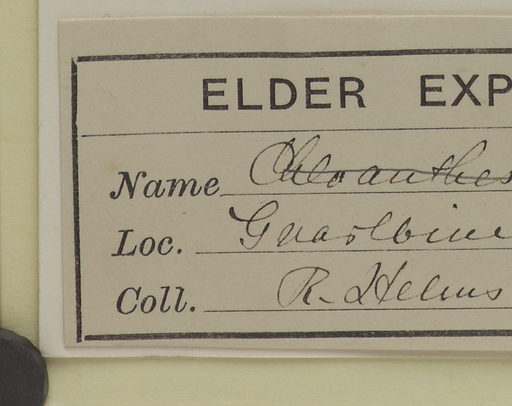 ELDER EXP
Name Chloanthes
Loc. Gnarlbine
Coll. R. Helms